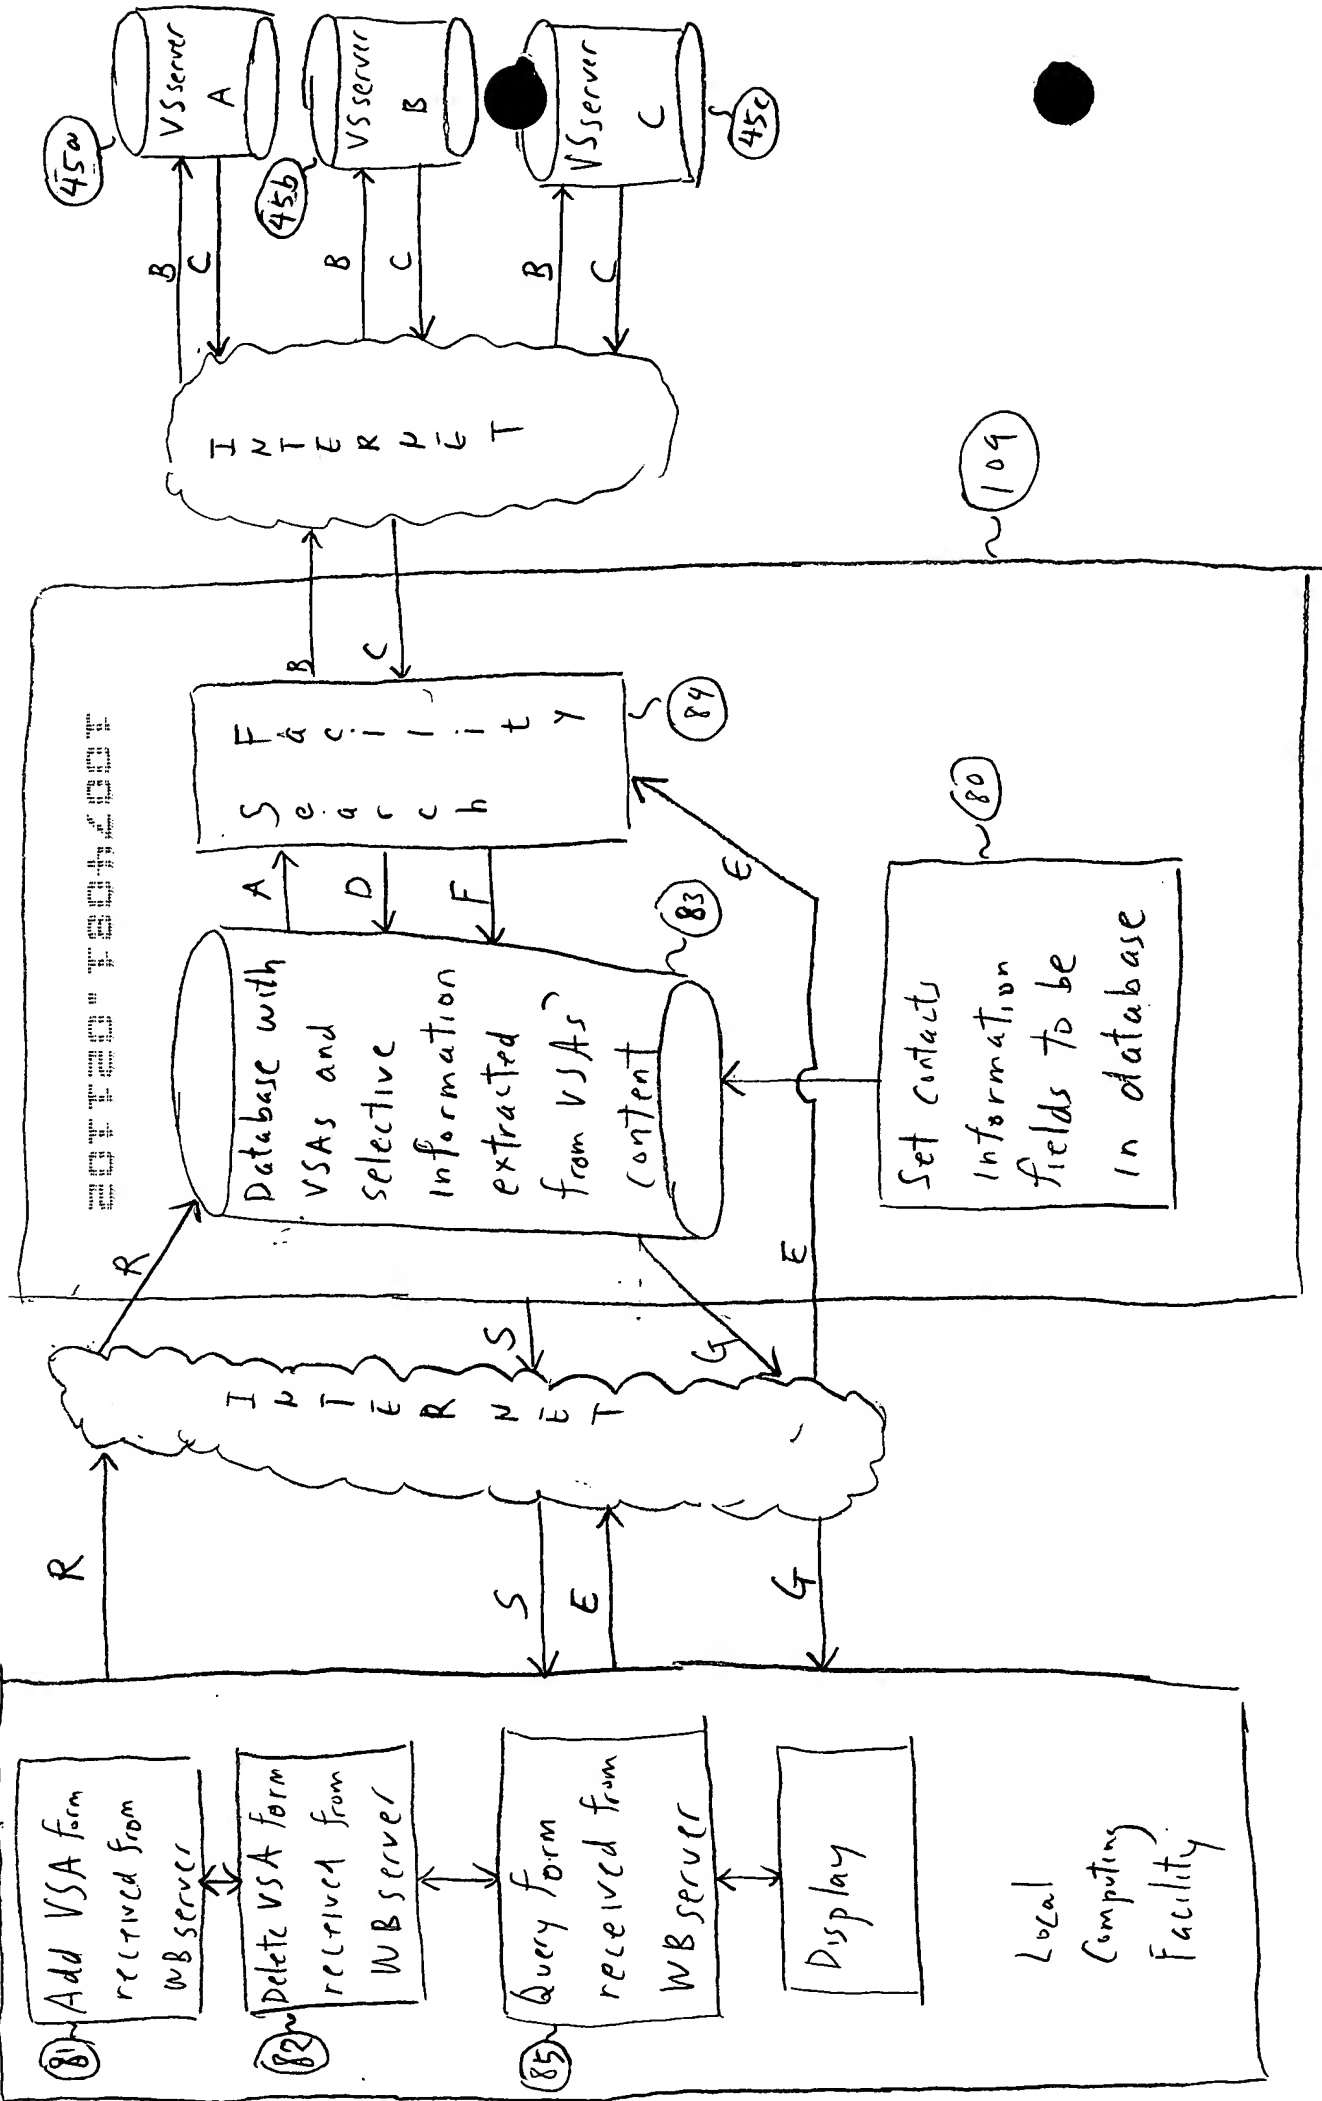 81
Add VSA form
received from
WBserver
82
Delete VSA form
received from
WBserver
85
Query form
received from
WBserver
Display
Local
Computing
Facility
R
S
E
G
INTERNET
R
S
G
E
10074081.021102
Database with
VSAs and
selective
information
extracted
from VSAs'
content
83
A
D
F
Search
Facility
84
E
Set contacts
information
fields to be
in database
80
109
B
C
INTERNET
B
C
B
C
B
C
45a
VSserver
A
45b
VSserver
B
VSserver
C
45c